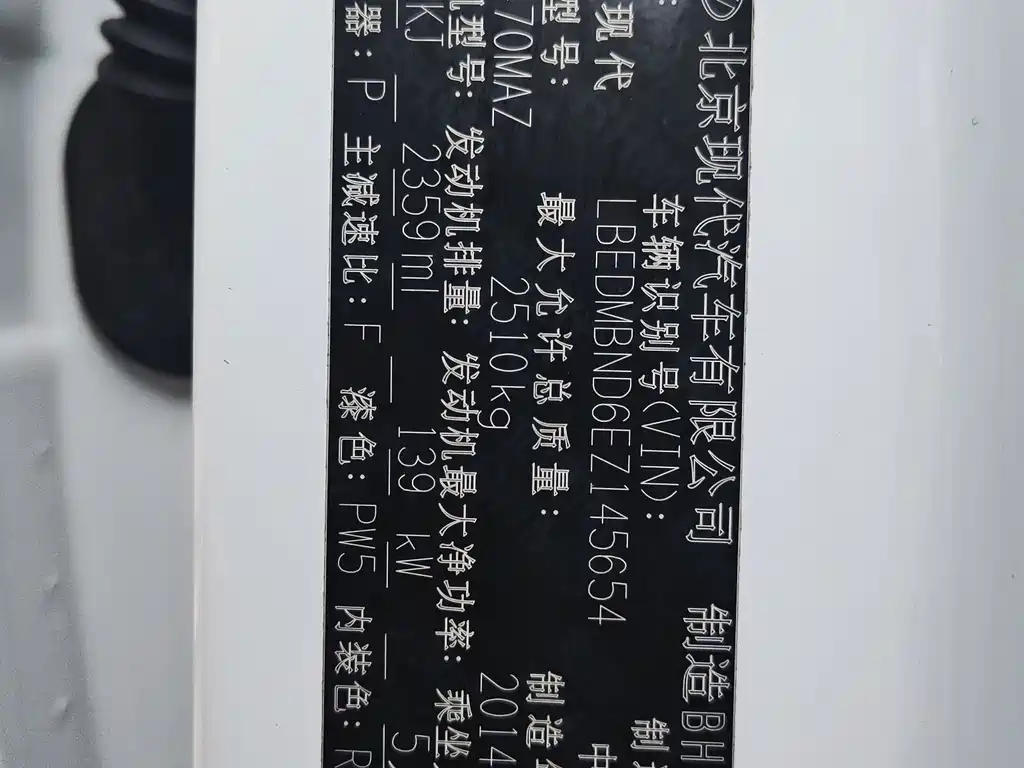 北京现代汽车有限公司 制造BH
车辆识别号(VIN):
现代 LBEDMBND6EZ145654 中
型号: 最大允许总质量: 制造
70MAZ 2510kg 2014
机型号: 发动机排量: 发动机最大净功率: 乘坐
KJ 2359ml 139 kW 5
器: P 主减速比: F 漆色: PW5 内装色: R